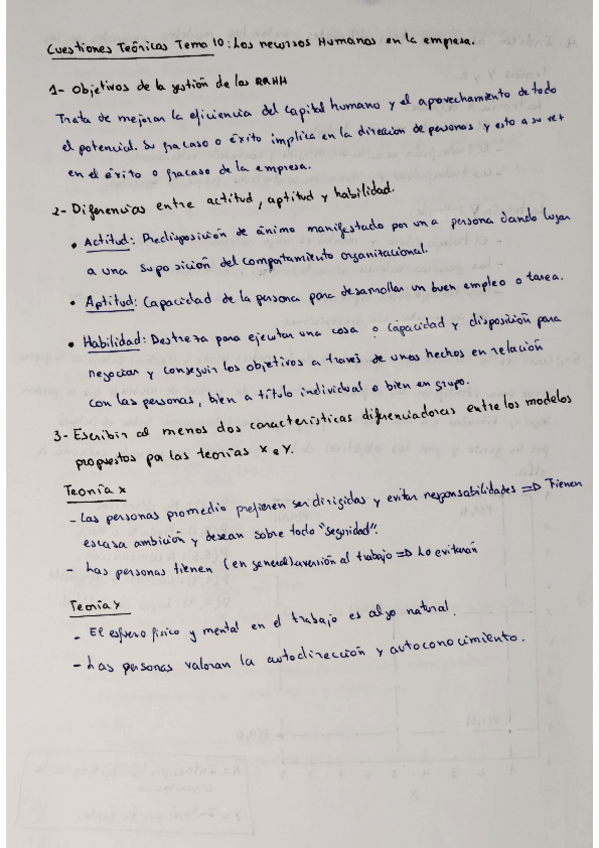 Cuestiones Teóricas Tema 10: Los recursos Humanos en la empresa.
1- Objetivos de la gestión de los RRHH
Trata de mejorar la eficiencia del capital humano y el aprovechamiento de todo
el potencial. Su fracaso o éxito implica en la dirección de personas y esto a su vez
en el éxito o fracaso de la empresa.
2- Diferencias entre actitud, aptitud y habilidad.
• Actitud: Predisposición de ánimo manifestado por una persona dando lugar
a una suposición del comportamiento organizacional.
• Aptitud: Capacidad de la persona para desarrollar un buen empleo o tarea.
• Habilidad: Destreza para ejecutar una cosa o capacidad y disposición para
negociar y conseguir los objetivos a través de unos hechos en relación
con las personas, bien a título individual o bien en grupo.
3- Escribir al menos dos características diferenciadoras entre los modelos
propuestos por las teorías X e Y.
Teoría x
- Las personas promedio prefieren ser dirigidas y evitar responsabilidades => Tienen
escasa ambición y desean sobre todo "seguridad".
- Las personas tienen (en general) aversión al trabajo => Lo evitarán
Teoría y
- El esfuerzo físico y mental en el trabajo es algo natural.
- Las personas valoran la autodirección y autoconocimiento.